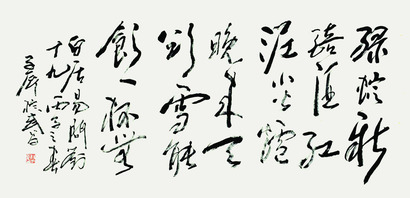 綠蟻新
醅酒紅
泥小火爐
晚來天
欲雪能
飲一杯無
白居易問劉
十九